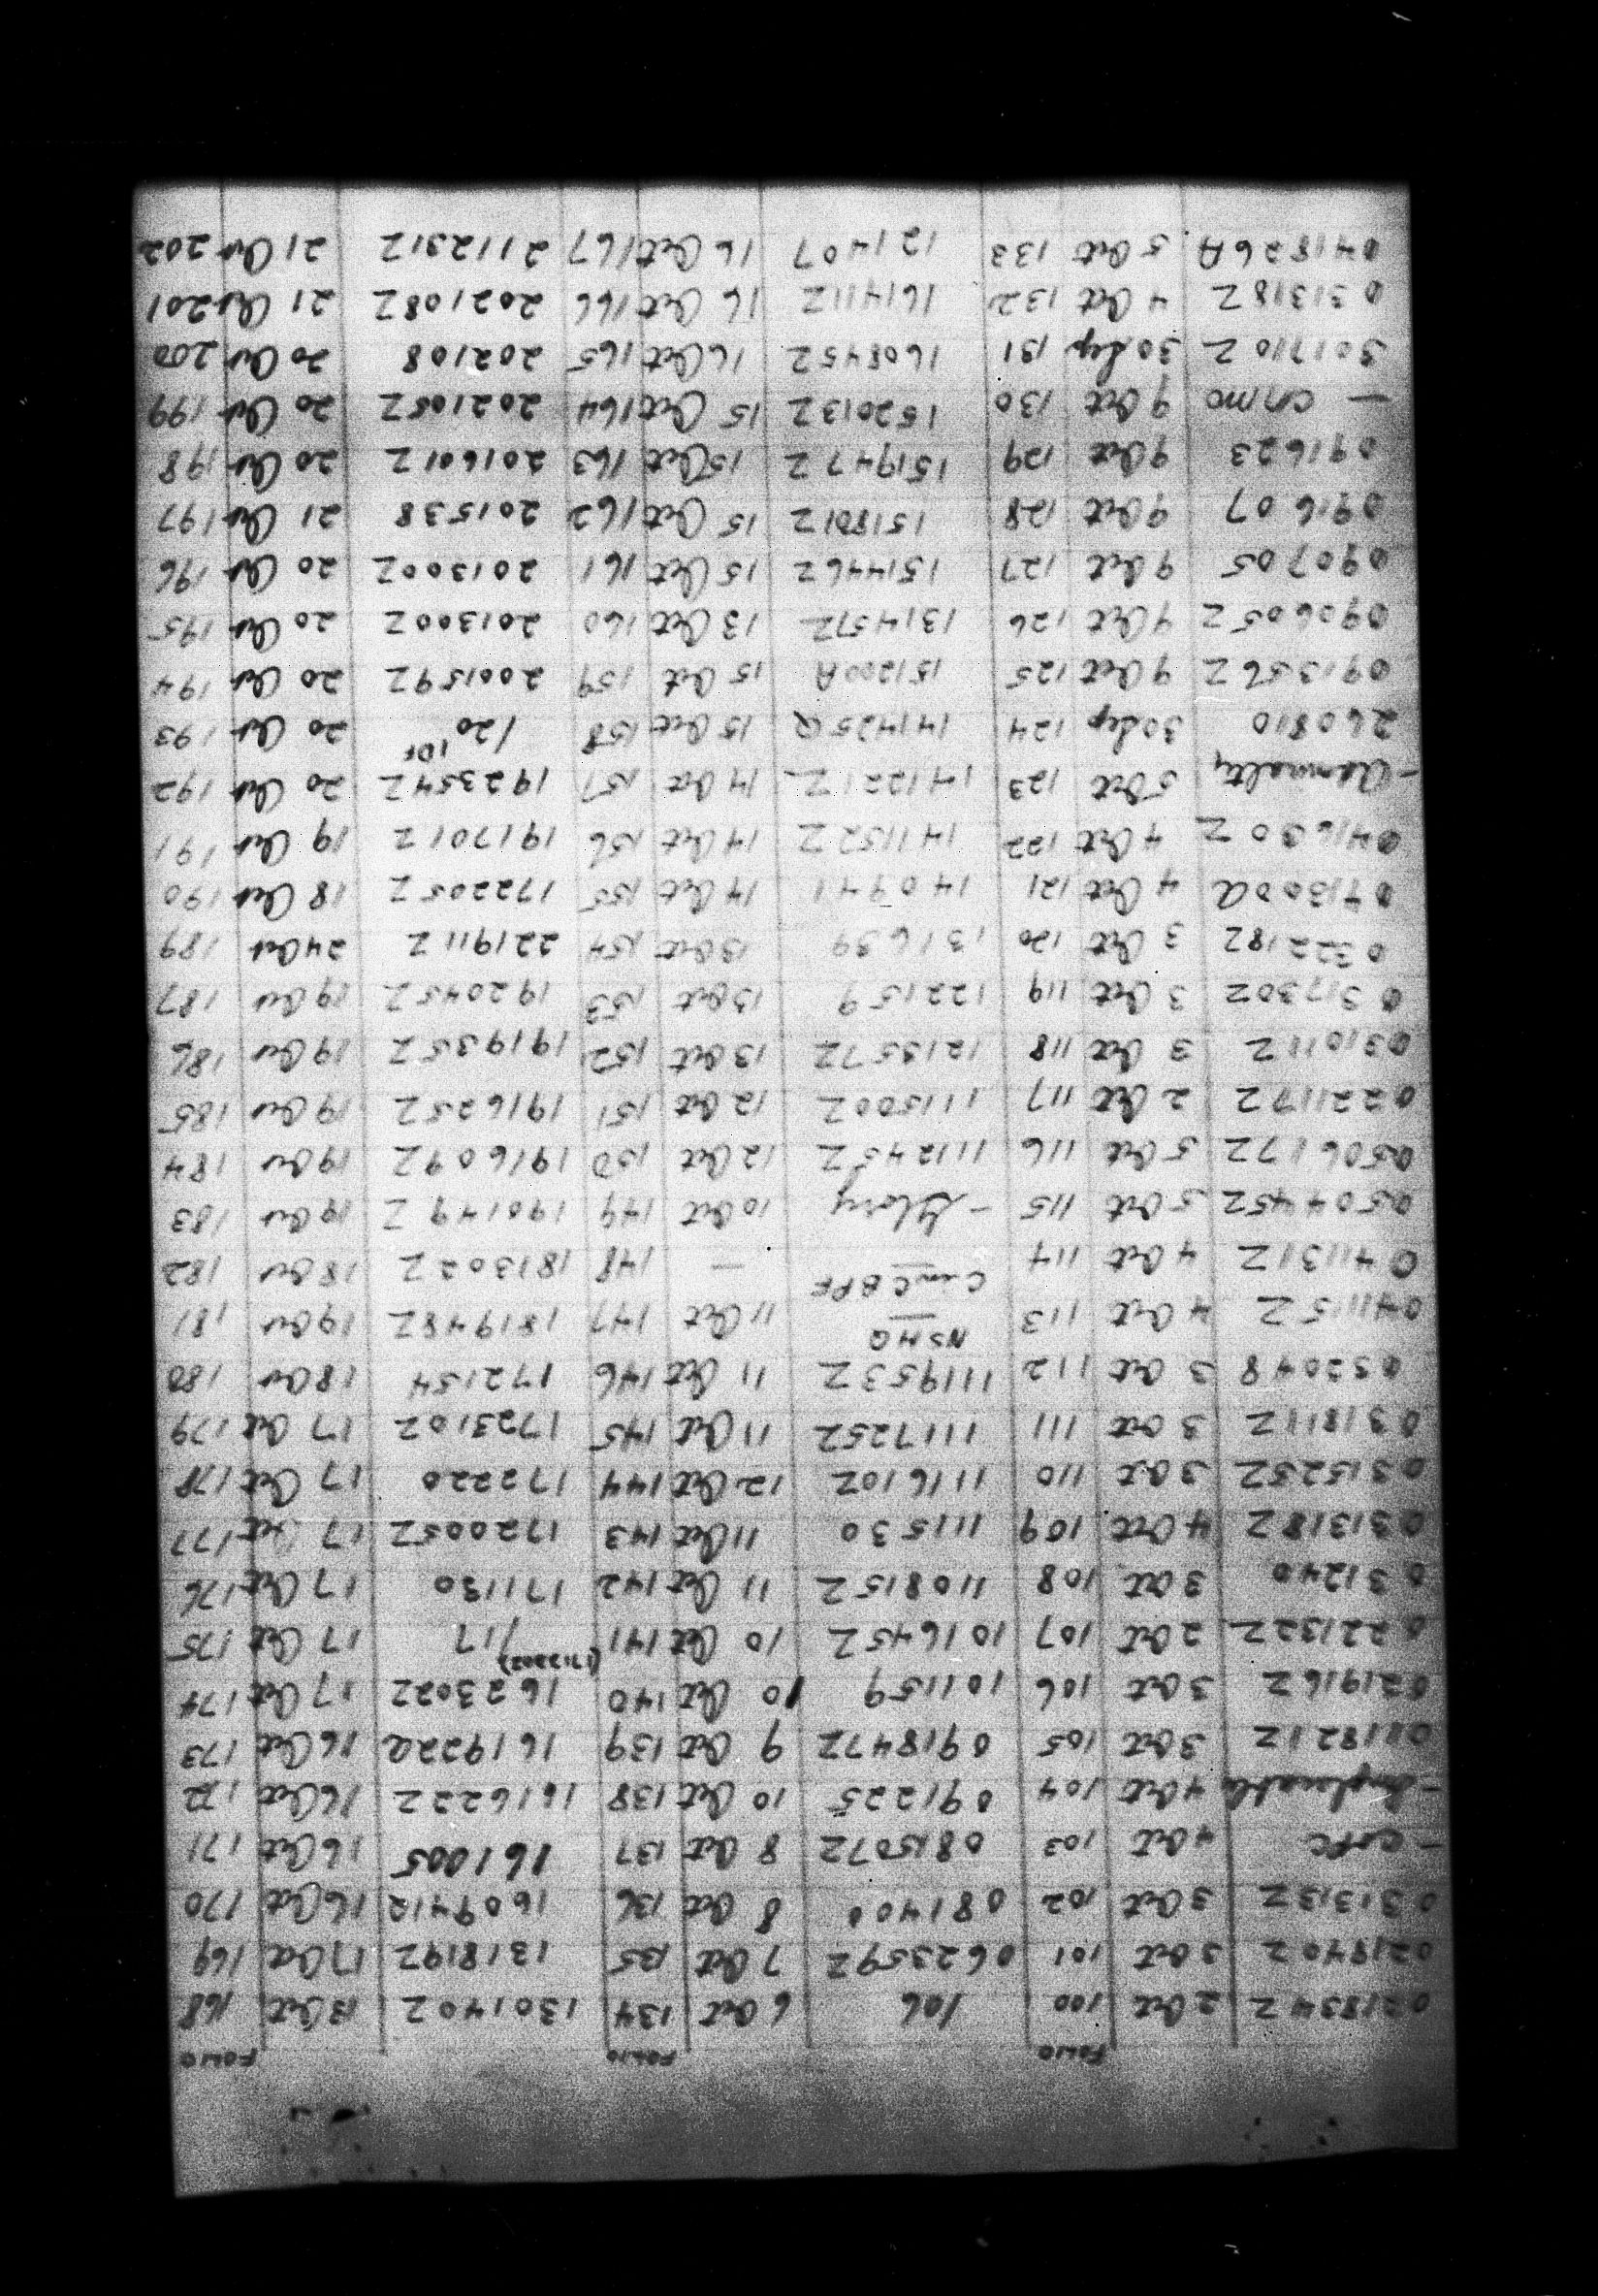 FOLIO FOLIO FOLIO
021834Z 2 Oct 100 /06 6 Oct 134 130140Z 13 Oct 168
021840Z 3 Oct 101 062359Z 7 Oct 135 131819Z 17 Oct 169
031313Z 3 Oct 102 081400 8 Oct 136 160941Q 16 Oct 170
— 4 Oct 103 081507Z 8 Oct 137 161005 16 Oct 171
— 4 Oct 104 091225 10 Oct 138 161622Z 16 Oct 172
011821Z 3 Oct 105 091847Z 9 Oct 139 161922Q 16 Oct 173
021916Z 3 Oct 106 101159 10 Oct 140 162302Z 17 Oct 174
(171220Z)
022132Z 2 Oct 107 101645Z 10 Oct 141 /17 17 Oct 175
031240 3 Oct 108 110815Z 11 Oct 142 171130 17 Oct 176
031318Z 4 Oct 109 111530 11 Oct 143 172005Z 17 Oct 177
031525Z 3 Oct 110 111610Z 12 Oct 144 172220 17 Oct 178
031811Z 3 Oct 111 111725Z 11 Oct 145 172310Z 17 Oct 179
032048 3 Oct 112 111953Z 11 Oct 146 172154 18 Oct 180
041115Z 4 Oct 113 NSHQ — 11 Oct 147 181948Z 19 Oct 181
041131Z 4 Oct 114 CinC BPF — — 148 181302Z 18 Oct 182
050445Z 5 Oct 115 — Glory 10 Oct 149 190149Z 19 Oct 183
050617Z 5 Oct 116 111245Z 12 Oct 150 191609Z 19 Oct 184
022117Z 2 Oct 117 111500Z 12 Oct 151 191625Z 19 Oct 185
031011Z 3 Oct 118 121357Z 13 Oct 152 191935Z 19 Oct 186
031730Z 3 Oct 119 122159 13 Oct 153 192045Z 19 Oct 187
032218Z 3 Oct 120 131639 13 Oct 154 221911Z 24 Oct 189
041300Q 4 Oct 121 140941 14 Oct 155 172205Z 18 Oct 190
041630Z 4 Oct 122 141152Z 14 Oct 156 191701Z 19 Oct 191
— Admiralty 5 Oct 123 141221Z 14 Oct 157 192354Z 20 Oct 192
260810 30 Sep 124 141425Q 15 Oct 158 /20 Oct 20 Oct 193
091356Z 9 Oct 125 151200A 15 Oct 159 200159Z 20 Oct 194
090605Z 9 Oct 126 131457Z 13 Oct 160 201300Z 20 Oct 195
090705 9 Oct 127 151446Z 15 Oct 161 201300Z 20 Oct 196
091607 9 Oct 128 151801Z 15 Oct 162 201538 21 Oct 197
091623 9 Oct 129 151947Z 15 Oct 163 201601Z 20 Oct 198
— CNMO 9 Oct 130 152013Z 15 Oct 164 202105Z 20 Oct 199
301710Z 30 Sep 131 160845Z 16 Oct 165 202108 20 Oct 200
031318Z 4 Oct 132 161411Z 16 Oct 166 202108Z 21 Oct 201
041826A 5 Oct 133 121407 16 Oct 167 211231Z 21 Oct 202